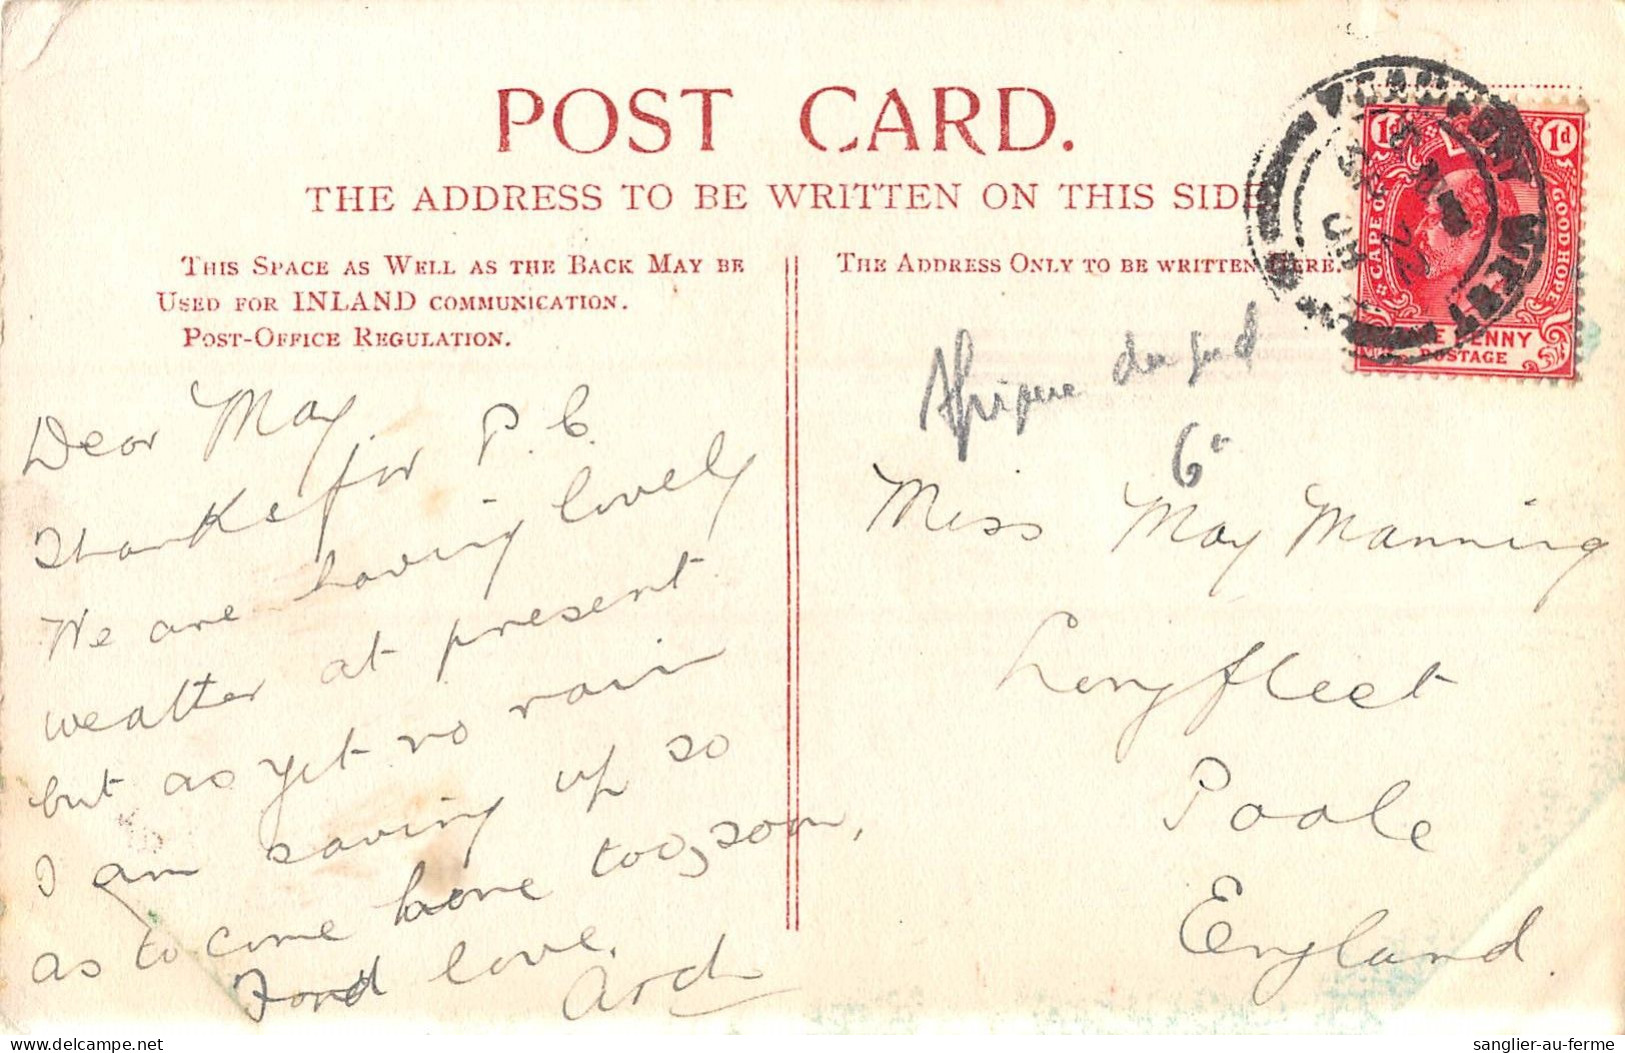 POST CARD.
THE ADDRESS TO BE WRITTEN ON THIS SIDE
THIS SPACE AS WELL AS THE BACK MAY BE
USED FOR INLAND COMMUNICATION.
POST-OFFICE REGULATION.
THE ADDRESS ONLY TO BE WRITTEN HERE.
1d 1d
CAPE OF GOOD HOPE
PENNY
POSTAGE
WEST
Afrique du sud
6
Dear May
Thanks for P.C.
We are having lovely
weather at present
but as yet no rain
I am saving up so
as to come home too, soon,
Fond love.
Arch
Miss May Manning
Longfleet
Poole
England.
sanglier-au-ferme